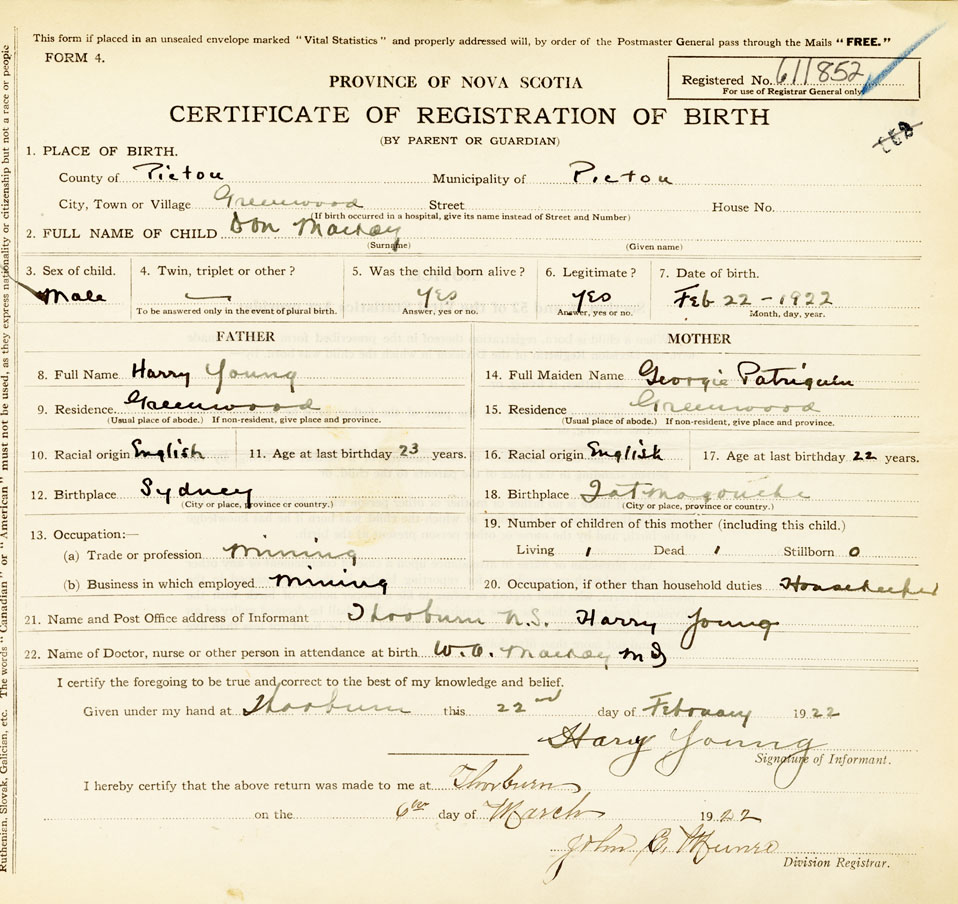 This form if placed in an unsealed envelope marked "Vital Statistics" and properly addressed will, by order of the Postmaster General pass through the Mails "FREE."
FORM 4.
PROVINCE OF NOVA SCOTIA
Registered No. 611852
For use of Registrar General only
CERTIFICATE OF REGISTRATION OF BIRTH
(BY PARENT OR GUARDIAN)
1. PLACE OF BIRTH.
County of Pictou Municipality of Pictou
City, Town or Village Greenwood Street House No.
(If birth occurred in a hospital, give its name instead of Street and Number)
2. FULL NAME OF CHILD Don Mackay
(Surname) (Given name)
3. Sex of child. 4. Twin, triplet or other? 5. Was the child born alive? 6. Legitimate? 7. Date of birth.
Male — Yes Yes Feb 22 - 1922
To be answered only in the event of plural birth. Answer, yes or no. Answer, yes or no. Month, day, year.
FATHER MOTHER
8. Full Name Harry Young 14. Full Maiden Name Georgie Patriquin
9. Residence Greenwood 15. Residence Greenwood
(Usual place of abode.) If non-resident, give place and province. (Usual place of abode.) If non-resident, give place and province.
10. Racial origin English 11. Age at last birthday 23 years. 16. Racial origin English 17. Age at last birthday 22 years.
12. Birthplace Sydney 18. Birthplace Tatmagouche
(City or place, province or country.) (City or place, province or country.)
13. Occupation:— 19. Number of children of this mother (including this child.)
(a) Trade or profession Mining Living 1 Dead 1 Stillborn 0
(b) Business in which employed Mining 20. Occupation, if other than household duties Housekeeper
21. Name and Post Office address of Informant Thorburn N.S. Harry Young
22. Name of Doctor, nurse or other person in attendance at birth Mackay MD
I certify the foregoing to be true and correct to the best of my knowledge and belief.
Given under my hand at Thorburn this 22nd day of February 1922
Hary Young
Signature of Informant.
I hereby certify that the above return was made to me at Thorburn
on the 6th day of March 1922
John C. Munro
Division Registrar.
Ruthenian, Slovak, Galician, etc. The words "Canadian" or "American" must not be used, as they express nationality or citizenship but not a race or people